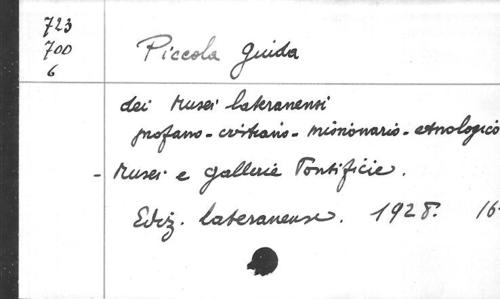 723
700
6
Piccola Guida
dei Musei lateranensi
profano - cristiano - missionario - etnologico
- Musei e gallerie Pontificie.
Ediz. lateranense. 1928. 16